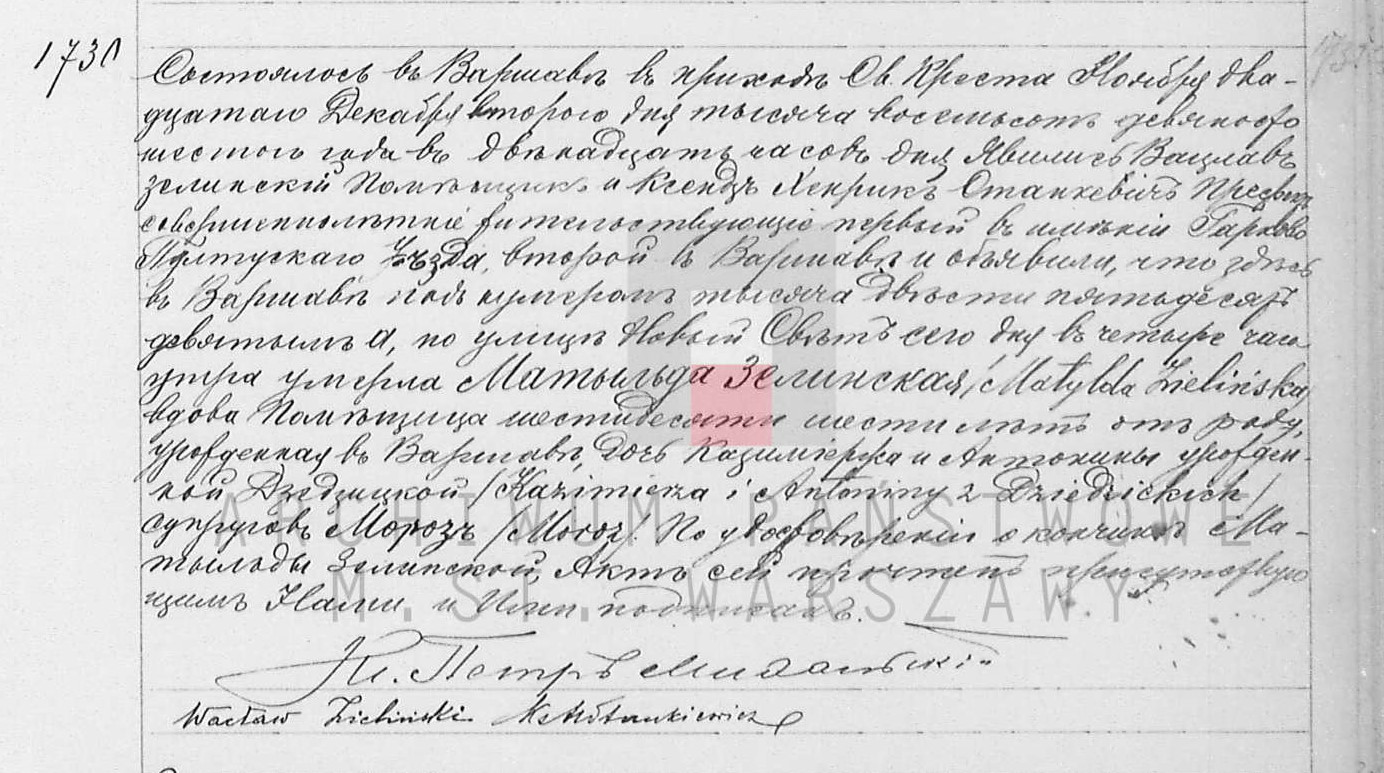 1730
Состоялось въ Варшавѣ въ приходѣ Св. Креста Ноября два-
дцатаго Декабря второго дня тысяча восемьсотъ девяносто
шестого года въ двѣнадцать часовъ дня Явились Вацлавъ
Зелинскій Помѣщикъ и Ксендзъ Хенрикъ Станкевичъ
совершеннолѣтніе жительствующіе первый въ имѣніи
Пултускаго Уѣзда, второй въ Варшавѣ и объявили, что здѣсь
въ Варшавѣ подъ нумеромъ тысяча двѣсти пятьдесятъ
девятымъ а, по улицѣ Новый Свѣтъ сего дня въ четыре часа
утра умерла Матыльда Зелинская /Matylda Zielińska/
вдова Помѣщица шестидесяти шести лѣтъ отъ роду,
урожденная въ Варшавѣ, дочь Казимержа и Антонины урожден-
ной Дзедзицкой /Kazimierza i Antoniny z Dziedzickich/
супруговъ Морозъ /Moroz/. По удостовѣреніи о кончинѣ Ма-
тыльды Зелинской, Актъ сей прочтенъ присутствую-
щимъ Нами и Ими подписанъ.
Кс. Петръ
Wacław Zieliński Ks H Stankiewicz
ARCHIWUM PAŃSTWOWE
M. ST. WARSZAWY